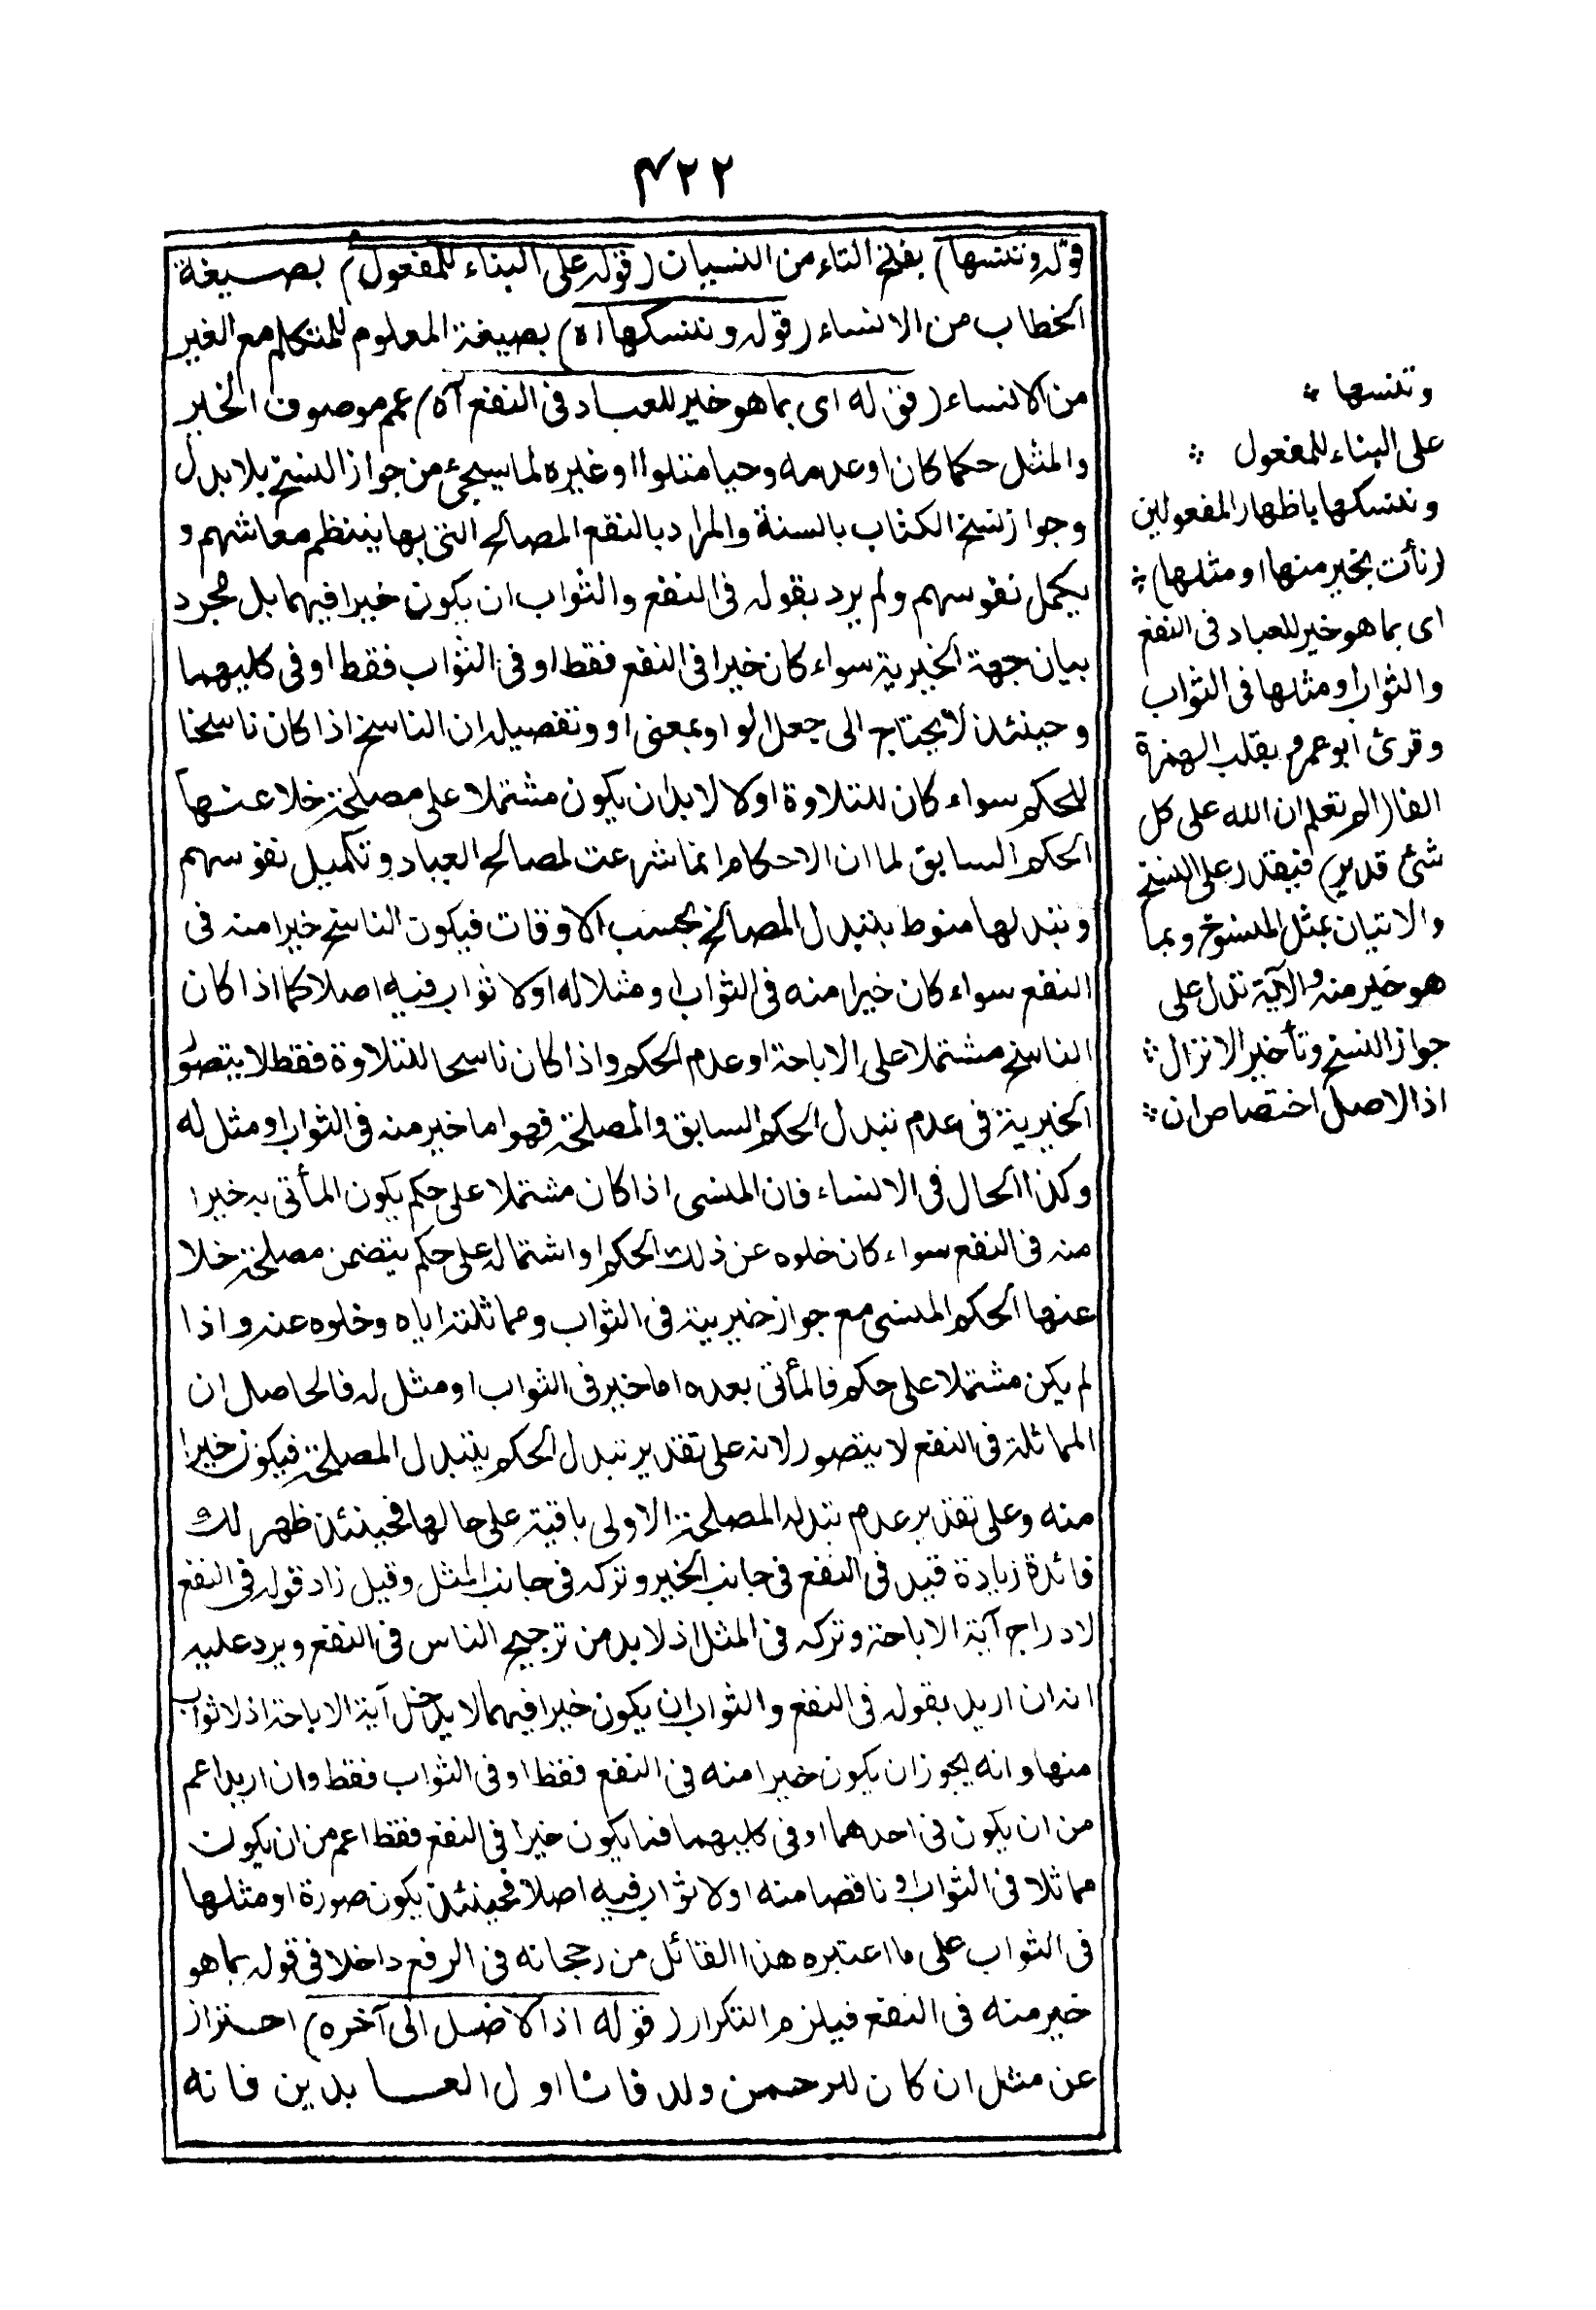 ٤٢٢
قوله وتنسها) بفتح التاء من النسيان (قوله على البناء للمفعول) بصيغة
الخطاب من الانساء (قوله وننسكها اه) بصيغة المعلوم للمتكلم مع الغير
من الانساء (قوله اى بما هو خير للعباد فى النفع آه) عمم موصوف الخير
والمثل حكما كان او عدمه وحيا متلوا او غيره لما سيجئ من جواز النسخ بلا بدل
وجواز نسخ الكتاب بالسنة والمراد بالنفع المصالح التى بها ينتظم معاشهم و
يكمل نفوسهم ولم يرد بقوله فى النفع والثواب ان يكون خيرا فيهما بل مجرد
بيان جهة الخيرية سواء كان خيرا فى النفع فقط او فى الثواب فقط او فى كليهما
وحينئذ لا يحتاج الى جعل الواو بمعنى او وتفصيله ان الناسخ اذا كان ناسخا
للحكم سواء كان للتلاوة اولا لا بد ان يكون مشتملا على مصلحة خلا عنها
الحكم السابق لما ان الاحكام انما شرعت لمصالح العباد وتكميل نفوسهم
وتبدلها منوط بتبدل المصالح بحسب الاوقات فيكون الناسخ خيرا منه فى
النفع سواء كان خيرا منه فى الثواب او مثلا له اولا ثواب فيه اصلا كما اذا كان
الناسخ مشتملا على الاباحة او عدم الحكم واذا كان ناسخا للتلاوة فقط لا يتصور
الخيرية فى عدم تبدل الحكم السابق والمصلحة فهو اما خير منه فى الثواب او مثل له
وكذا الحال فى الانساء فان المنسى اذا كان مشتملا على حكم يكون المأتى به خيرا
منه فى النفع سواء كان خلوه عن ذلك الحكم او اشتماله على حكم يتضمن مصلحة خلا
عنها الحكم المنسى مع جواز خيريته فى الثواب ومماثلته اياه وخلوه عنه واذا
لم يكن مشتملا على حكم فالمأتى بعده اما خير فى الثواب او مثل له فالحاصل ان
المماثلة فى النفع لا يتصور لانه على تقدير تبدل الحكم يتبدل المصلحة فيكون خيرا
منه وعلى تقدير عدم تبدله المصلحة الاولى باقية على حالها فحينئذ ظهر لك
فائدة زيادة قيد فى النفع فى جانب الخير وتركه فى جانب المثل وقيل زاد قوله فى النفع
لادراج آية الاباحة وتركه فى المثل اذ لا بد من ترجيح الناس فى النفع ويرد عليه
انه ان اريد بقوله فى النفع والثواب ان يكون خيرا فيهما لا يدخل آية الاباحة اذ لا ثواب
منها وانه يجوز ان يكون خيرا منه فى النفع فقط او فى الثواب فقط وان اريد اعم
من ان يكون فى احدهما او فى كليهما فما يكون خيرا فى النفع فقط اعم من ان يكون
مماثلا فى الثواب او ناقصا منه اولا ثواب فيه اصلا فحينئذ يكون صورة او مثلها
فى الثواب على ما اعتبره هذا القائل من رجحانه فى الرفع داخلا فى قوله بما هو
خير منه فى النفع فيلزم التكرار (قوله اذ الاصل الى آخره) احتراز
عن مثل ان كان للرحمن ولد فانا اول العابدين فانه
وتنسها
على البناء للمفعول
وننسكها باظهار المفعولين
(نأت بخير منها او مثلها)
اى بما هو خير للعباد فى النفع
والثواب او مثلها فى الثواب
وقرئ ابو عمرو بقلب الهمزة
الفا (الم تعلم ان الله على كل
شئ قدير) فيقدر على النسخ
والاتيان بمثل المنسوخ وبما
هو خير منه والآية تدل على
جواز النسخ وتأخير الانزال
اذ الاصل اختصاص ان